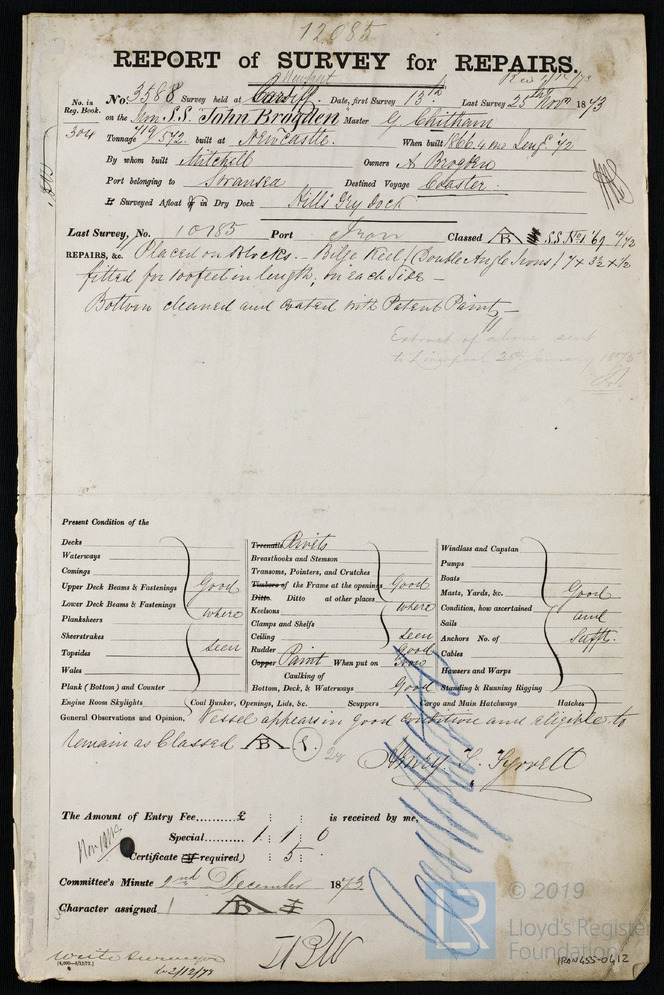 12085
REPORT of SURVEY for REPAIRS.
Newport
No. in Reg. Book. No. 3588 Survey held at Cardiff. Date, first Survey 13th Last Survey 25th Novr 1873
304 on the Iron S.S. "John Brogden Master G Chitham
Tonnage 719/572 built at Newcastle. When built 1866.4mo
By whom built Mitchell Owners A Brogden
Port belonging to Swansea Destined Voyage Coaster.
If Surveyed Afloat or in Dry Dock Hill's Dry dock
Last Survey, No. 10185 Port Iron Classed B S.S. No 1 '69 4/72
REPAIRS, &c. Placed on blocks. – Bilge Keel (Double Angle Irons) 7 x 3½ x ½
fitted for 100 feet in length, on each side –
Bottom cleaned and coated with Patent Paint –
Extract of above sent
to Liverpool
Present Condition of the
Decks
Waterways
Comings
Upper Deck Beams & Fastenings Good
Lower Deck Beams & Fastenings where
Planksheers
Sheerstrakes seen
Topsides
Wales
Plank (Bottom) and Counter
Treenails Rivets
Breasthooks and Stemson
Transoms, Pointers, and Crutches
Timbers of the Frame at the openings Good
Ditto. Ditto at other places where
Keelsons
Clamps and Shelfs
Ceiling seen
Rudder Good
Copper Paint When put on Good
Caulking of
Bottom, Deck, & Waterways Good
Windlass and Capstan
Pumps
Boats
Masts, Yards, &c. Good
Condition, how ascertained and
Sails
Anchors No. of Sufft.
Cables
Hawsers and Warps
Standing & Running Rigging
Engine Room Skylights Coal Bunker, Openings, Lids, &c. Scuppers Cargo and Main Hatchways Hatches
General Observations and Opinion, Vessel appears in good condition and eligible to
remain as Classed B
Henry T. Tyrrell
The Amount of Entry Fee.......... £ : : is received by me,
Special.......... 1 : 1 : 0
Certificate (if required) : 5 :
Committee's Minute 2nd December 1873
Character assigned B
write surveyor
2/12/73
(4,000—9/12/72.)
© 2019
LR
Lloyd's Register
Foundation
IRON455-0412